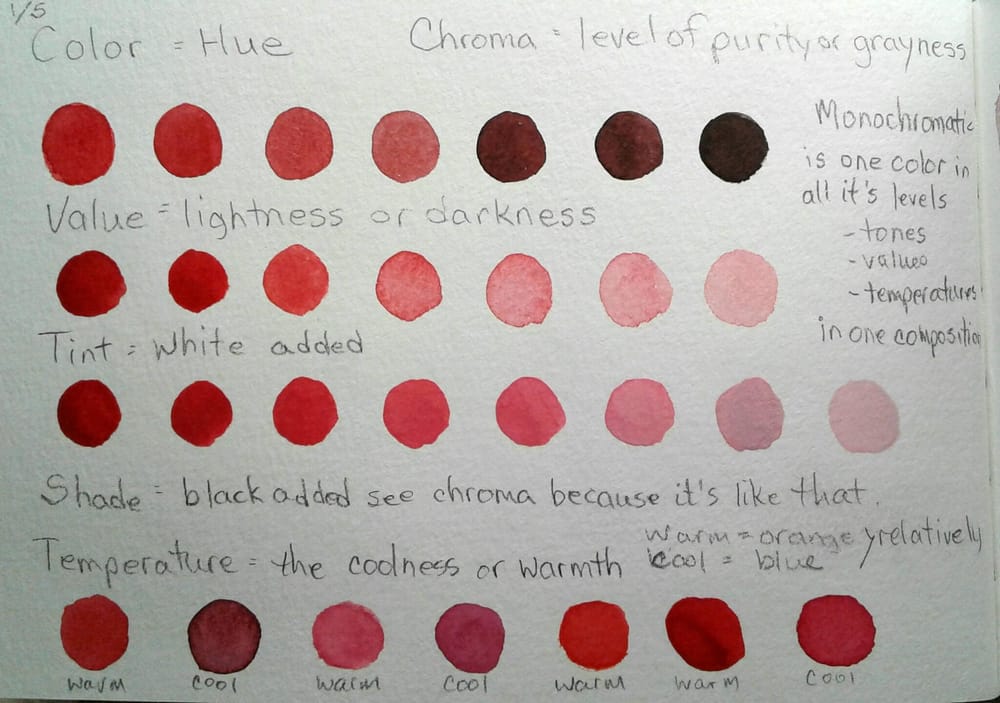 1/5
Color = Hue
Chroma = level of purity or grayness
Monochromatic
is one color in
all it's levels
- tones
- values
- temperatures
in one composition
Value = lightness or darkness
Tint = White added
Shade = black added see chroma because it's like that.
Temperature = the coolness or warmth
warm = orange } relatively
cool = blue
warm
cool
warm
cool
warm
warm
cool